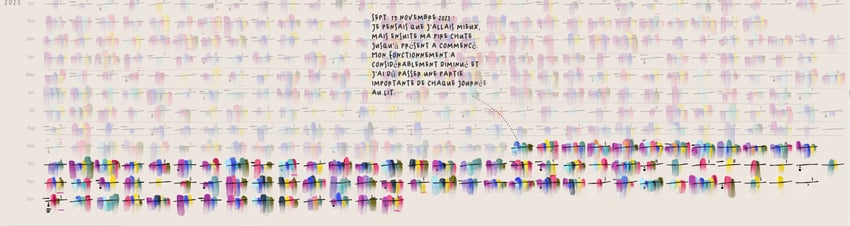 2023
SEPT. 17 NOVEMBRE 2023
JE PENSAIS QUE J'ALLAIS MIEUX,
MAIS ENSUITE MA PIRE CHUTE
JUSQU'À PRÉSENT A COMMENCÉ.
MON FONCTIONNEMENT A
CONSIDÉRABLEMENT DIMINUÉ ET
J'AI DÛ PASSER UNE PARTIE
IMPORTANTE DE CHAQUE JOURNÉE
AU LIT.